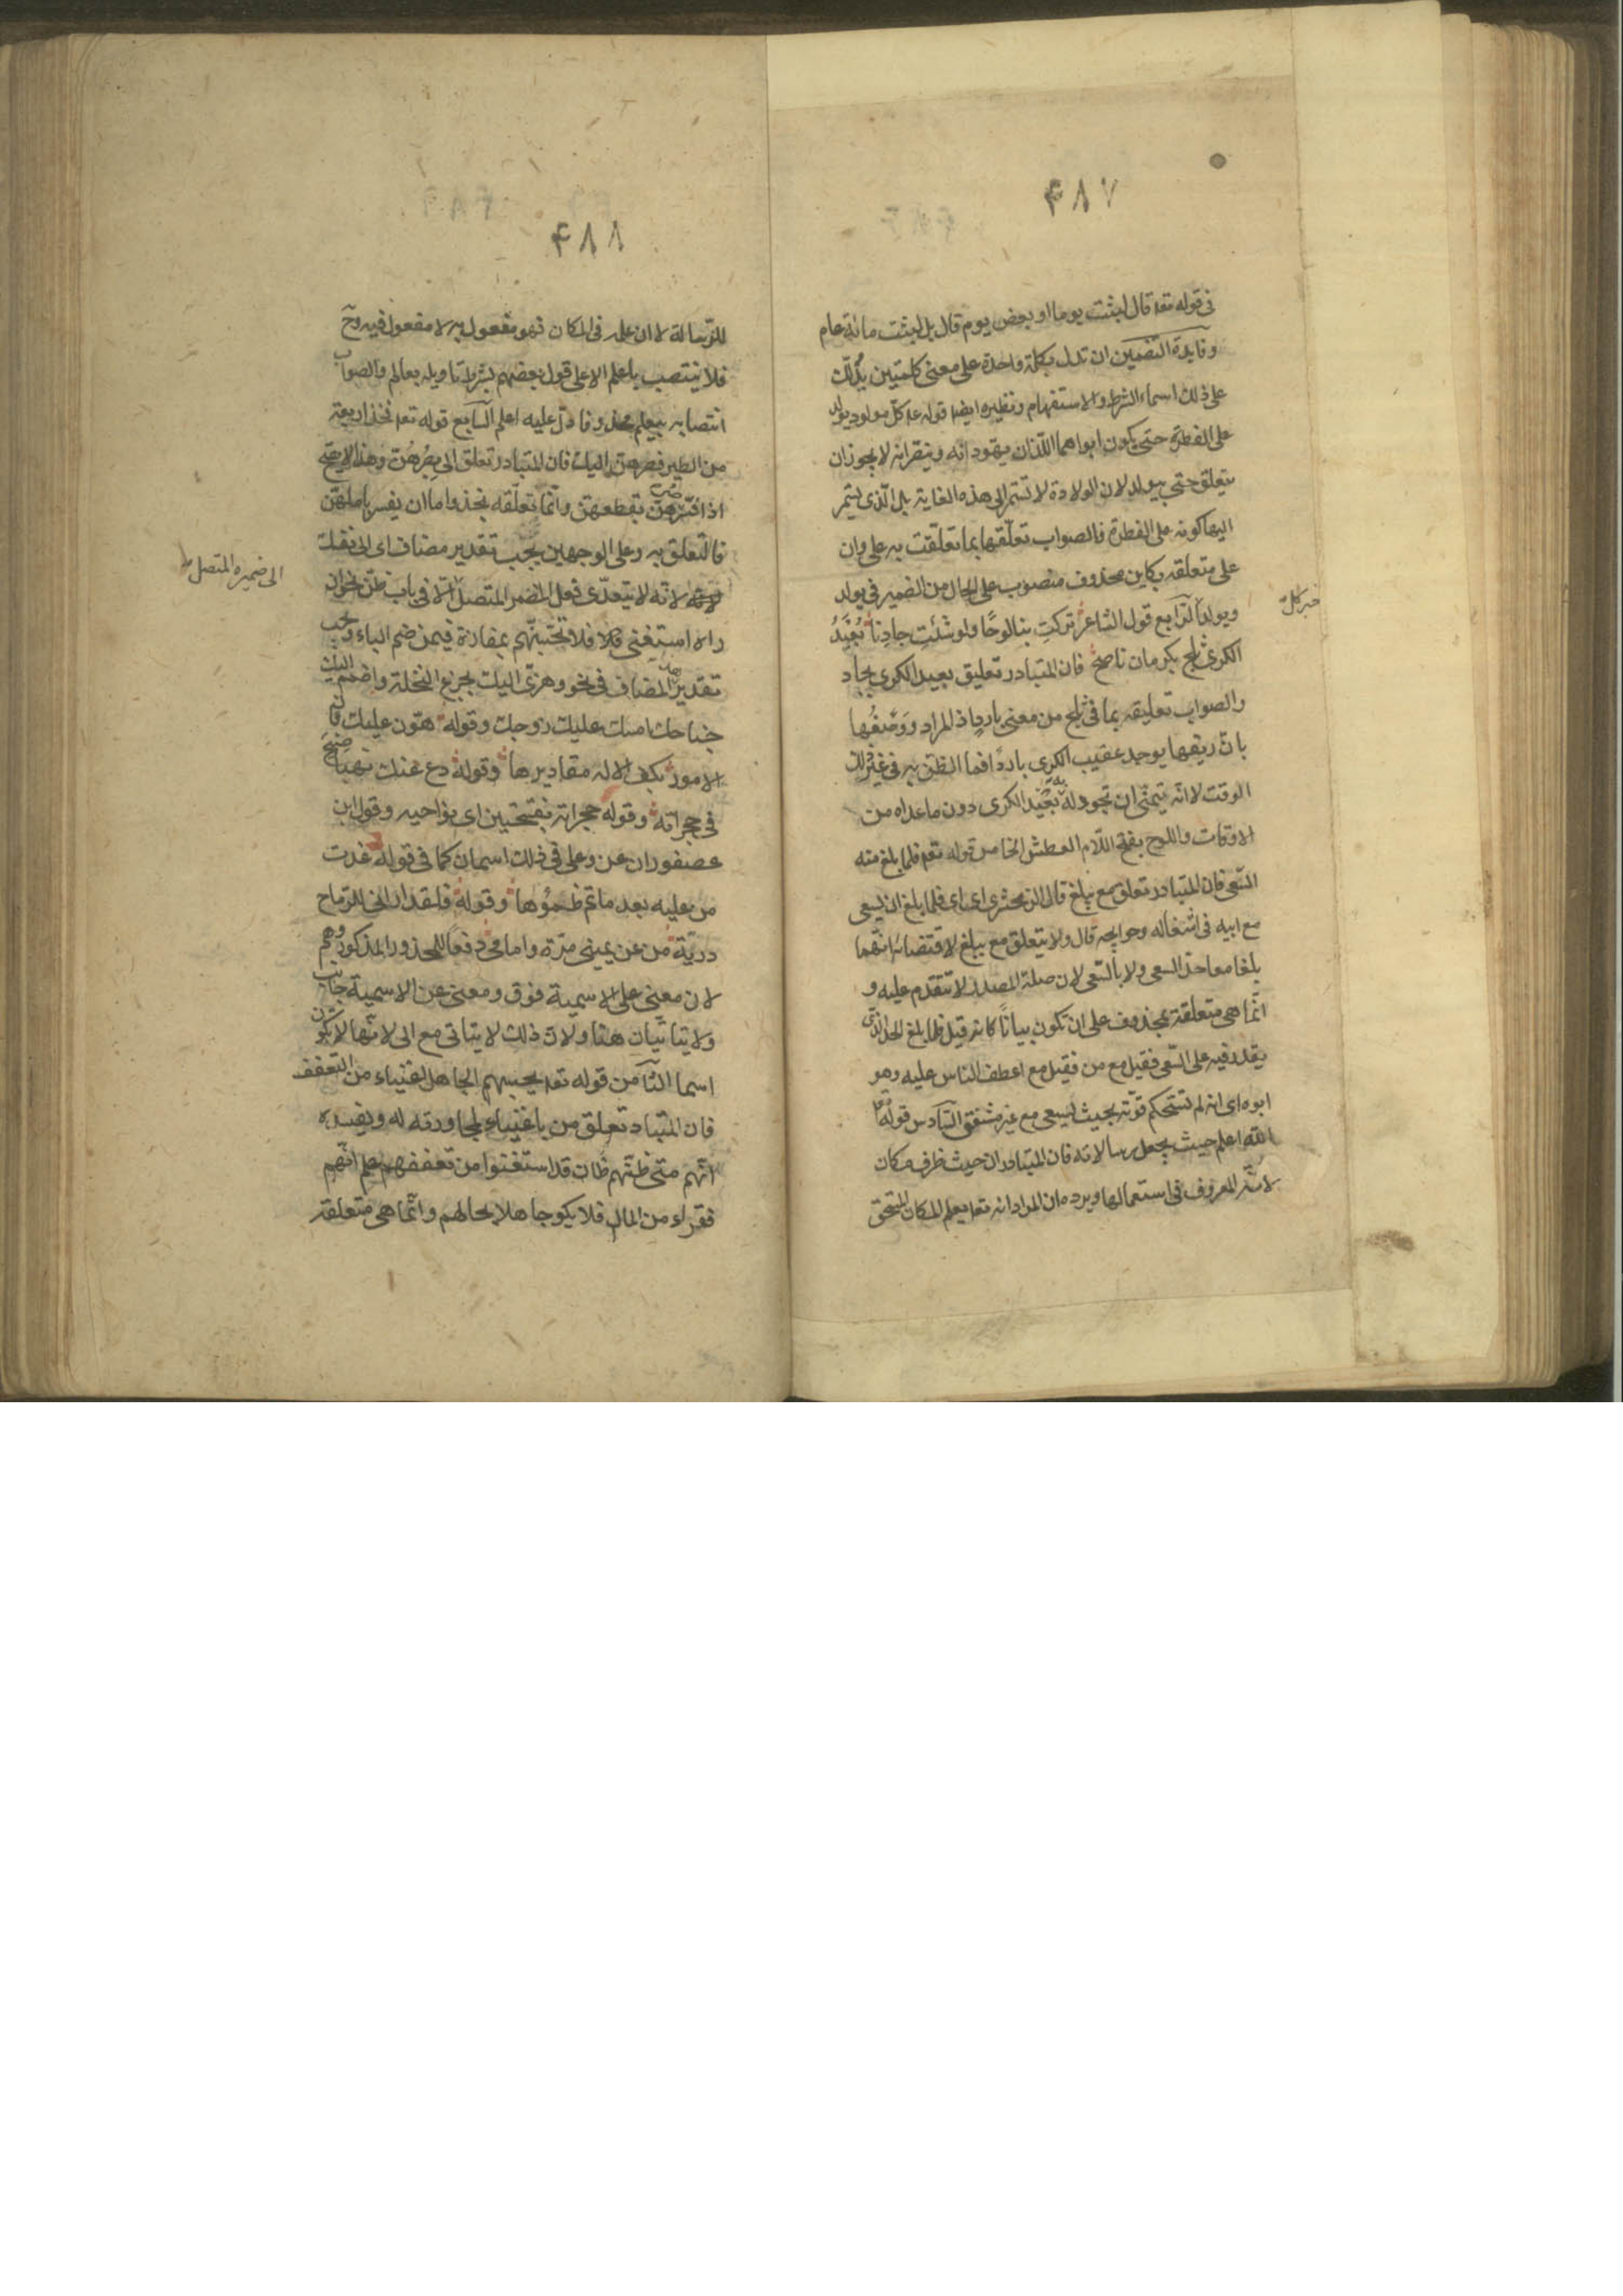 ۴۸۷
في قوله تعه قال لبثت يوما او بعض يوم قال بل لبثت مائة عام
وفايدة التضمين ان تدل بكلمة واحدة على معنى كلمتين يدلك
على ذلك اسماء الشرط والاستفهام ونظيره ايضا قوله عه كل مولود يولد
على الفطرة حتى يكون ابواهما اللذان يهودانه وينصرانه لا يجوز ان
يتعلق حتى بيولد لان الولادة لا تستمر الى هذه الغاية بل الذى يستمر
اليها كونه على الفطرة فالصواب تعلقها بما تعلقت به على وان
على متعلقه بكاين محذوف منصوب على الحال من الضمير في يولد
ويولد الرابع قول الشاعر تركت بنا لوحًا ولو شئت جادنا بُعَيْدُ
الكرى ثلج بكرمان ناصح فان المتبادر تعليق بعيد الكرى بجاد
والصواب تعليقه بما في ثلج من معنى بارد اذ المراد وَصْفُها
بان ريقها يوجد عقيب الكرى باردًا فما الظن به في غير ذلك
الوقت لا انه يتمنى ان تجود له به بُعَيْد الكرى دون ما عداه من
الاوقات واللوح بفتح اللام العطش الخامس قوله تعه فلما بلغ معه
السعى فان المتبادر تعلق مع ببلغ قال الزمخشرى اى فلما بلغ ان يسعى
مع ابيه في اشغاله وحوايجه قال ولا يتعلق مع ببلغ لاقتضائه انهما
بلغا معا حد السعى ولا بالسعى لان صلة المصدر لا تتقدم عليه و
انما هى متعلقة بمحذوف على ان تكون بيانًا كانه قيل فلما بلغ الحد الذى
يقدر فيه على السعى فقيل مع من فقيل مع اعطف الناس عليه وهو
ابوه اى انه لم تستحكم قوته بحيث يسعى مع غير مشفق السادس قوله تعه
الله اعلم حيث يجعل رسالاته فان المتبادر ان حيث ظرف مكان
لانه المعروف في استعمالها ويرده ان المراد انه تعه يعلم المكان المستحق
خبر كل
۴۸۸
للرسالة لا ان علمه في المكان فهو مفعول به لا مفعول فيه وح
فلا ينتصب باعلم الا على قول بعضهم بشرط تاويله بعالم والصواب
انتصابه بيعلم محذوفا دل عليه اعلم السابع قوله تعه فخذ اربعة
من الطير فصرهن اليك فان المتبادر تعلق الى بصرهن وهذا لا يصح
اذا فسر صرهن بقطعهن وانما تعلقه بخذ واما ان يفسر باملهن
فالتعلق به وعلى الوجهين يجب تقدير مضاف اى الى نفسك
لانه لا يتعدى فعل المضمر المتصل الا في باب ظن نحو ان
راه استغنى فلا تحسبنهم بمفازة فيمن ضم الباء ويجب
تقدير المضاف في نحو وهزى اليك بجزع النخلة واضمم اليك
جناحك امسك عليك زوجك وقوله هون عليك فان
الامور بكف الاله مقاديرها وقوله دع عنك نهبًا صيح
في حجراته وقوله حجراته بفتحتين اى نواحيه وقول ابن
عصفور ان عن وعلى في ذلك اسمان كما في قوله غدت
من عليه بعد ما تم ظمؤها وقوله فلقد ارانى للرماح
دريّة من عن يمينى مرة وامامى دفعًا للمحذور المذكور وهم
لان معنى على الاسمية فوق ومعنى عن الاسمية جانب
ولا يتاتيان هنا ولان ذلك لا يتاتى مع الى لانها لا تكون
اسما الثامن قوله تعه يحسبهم الجاهل اغنياء من التعفف
فان المتبادر تعلق من باغنياء لمجاورته له ويفسده
انهم متى ظنهم ظان قد استغنوا من تعففهم علم انهم
فقراء من المال فلا يكون جاهلا بحالهم وانما هى متعلقة
الى ضميره المتصل